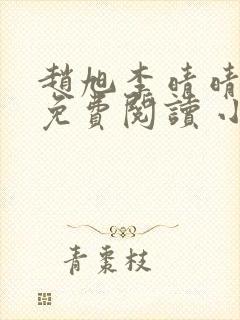 趙旭李晴晴
免費閱讀小
青棗枝